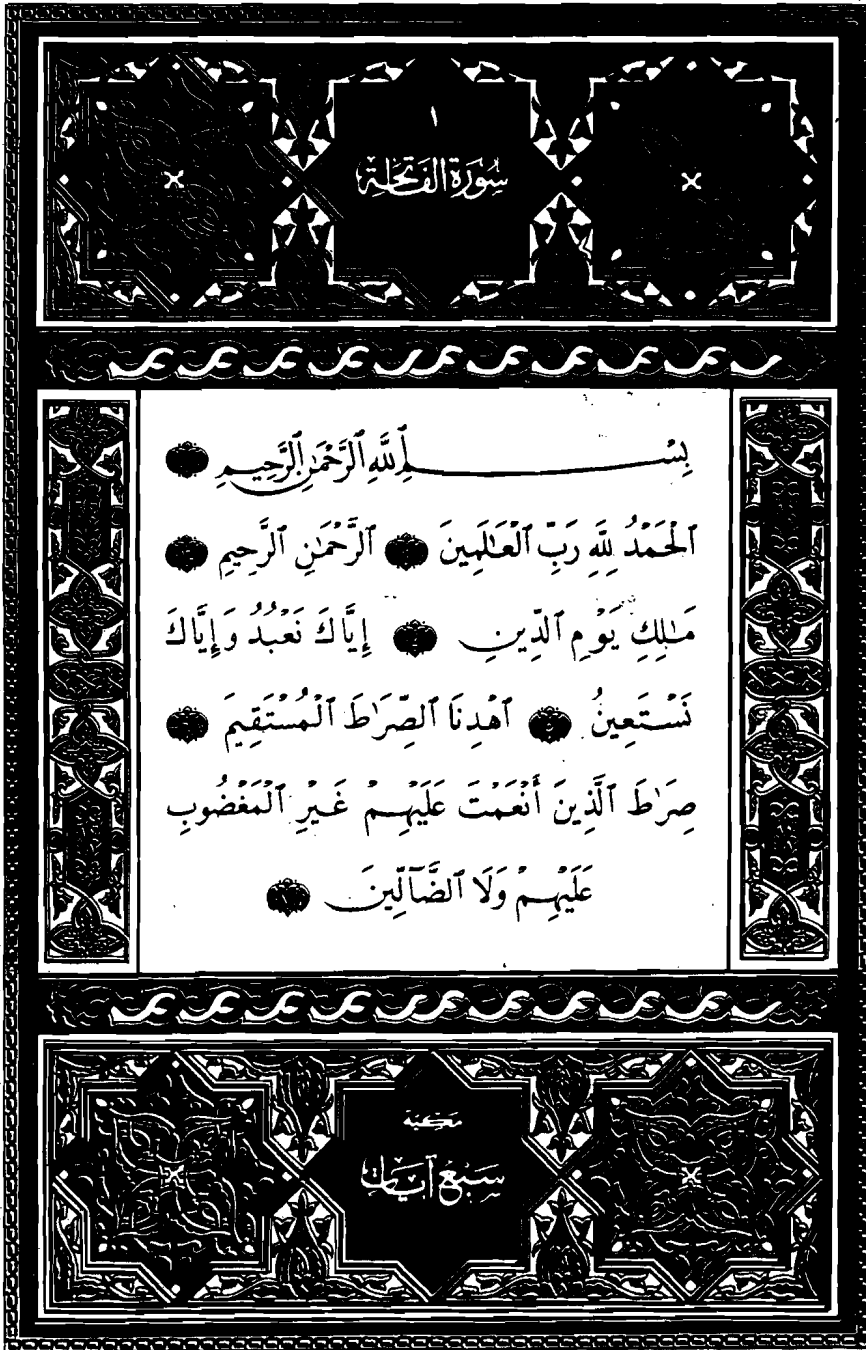 ١
سُورَةُ الفَاتِحَةِ
بِسْمِ ٱللَّهِ ٱلرَّحْمَٰنِ ٱلرَّحِيمِ ١
ٱلْحَمْدُ لِلَّهِ رَبِّ ٱلْعَٰلَمِينَ ٢ ٱلرَّحْمَٰنِ ٱلرَّحِيمِ ٣
مَٰلِكِ يَوْمِ ٱلدِّينِ ٤ إِيَّاكَ نَعْبُدُ وَإِيَّاكَ
نَسْتَعِينُ ٥ ٱهْدِنَا ٱلصِّرَٰطَ ٱلْمُسْتَقِيمَ ٦
صِرَٰطَ ٱلَّذِينَ أَنْعَمْتَ عَلَيْهِمْ غَيْرِ ٱلْمَغْضُوبِ
عَلَيْهِمْ وَلَا ٱلضَّآلِّينَ ٧
مَكيّة
سَبْعُ آيَات